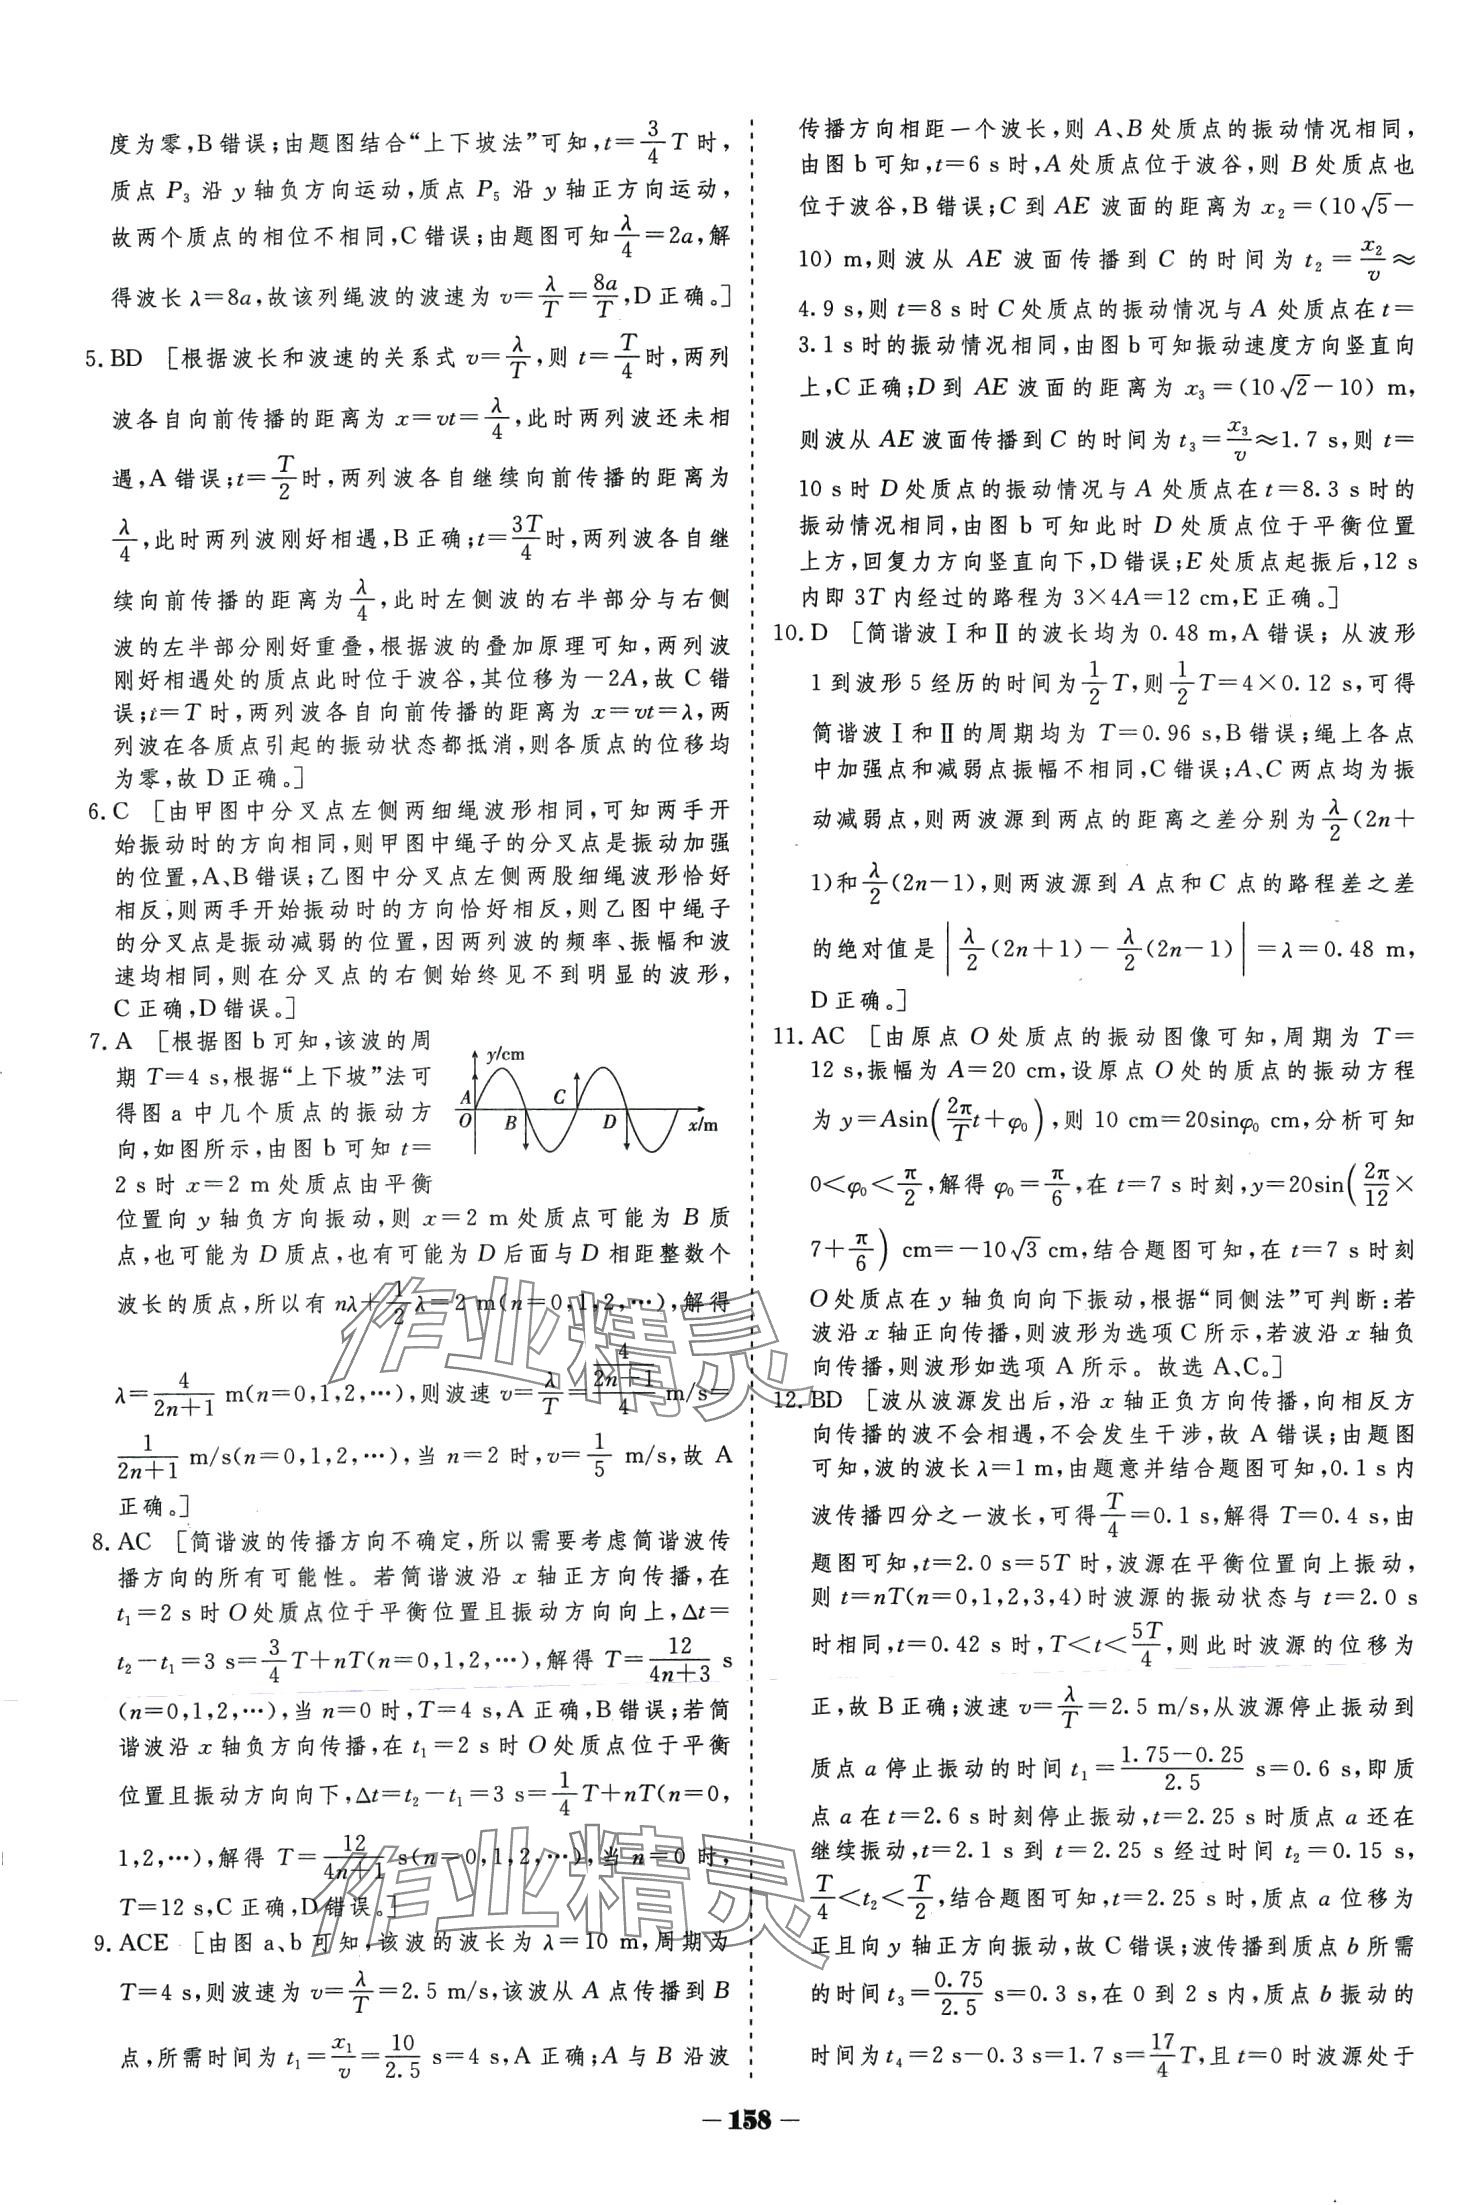 度为零,B错误;由题图结合“上下坡法”可知,t=3/4 T时,
质点 P₃ 沿 y 轴负方向运动,质点 P₅ 沿 y 轴正方向运动,
故两个质点的相位不相同,C错误;由题图可知 λ/4=2a,解
得波长 λ=8a,故该列绳波的波速为 v=λ/T=8a/T,D正确。]
5. BD [根据波长和波速的关系式 v=λ/T,则 t=T/4时,两列
波各自向前传播的距离为 x=vt=λ/4,此时两列波还未相
遇,A错误;t=T/2时,两列波各自继续向前传播的距离为
λ/4,此时两列波刚好相遇,B正确;t=3T/4时,两列波各自继
续向前传播的距离为λ/4,此时左侧波的右半部分与右侧
波的左半部分刚好重叠,根据波的叠加原理可知,两列波
刚好相遇处的质点此时位于波谷,其位移为-2A,故C错
误;t=T时,两列波各自向前传播的距离为 x=vt=λ,两
列波在各质点引起的振动状态都抵消,则各质点的位移均
为零,故D正确。]
6. C [由甲图中分叉点左侧两细绳波形相同,可知两手开
始振动时的方向相同,则甲图中绳子的分叉点是振动加强
的位置,A、B错误;乙图中分叉点左侧两股细绳波形恰好
相反,则两手开始振动时的方向恰好相反,则乙图中绳子
的分叉点是振动减弱的位置,因两列波的频率、振幅和波
速均相同,则在分叉点的右侧始终见不到明显的波形,
C正确,D错误。]
7. A [根据图b可知,该波的周
期 T=4 s,根据“上下坡”法可
得图a中几个质点的振动方
向,如图所示,由图b可知 t=
2 s时 x=2 m处质点由平衡
y/cm
A
O
B
C
D
x/m
位置向 y 轴负方向振动,则 x=2 m处质点可能为 B 质
点,也可能为 D 质点,也有可能为 D 后面与 D 相距整数个
波长的质点,所以有 nλ+1/2 λ=2 m(n=0,1,2,…),解得
λ=4/(2n+1) m(n=0,1,2,…),则波速 v=λ/T=(4/(2n+1))/4 m/s=
1/(2n+1) m/s(n=0,1,2,…),当 n=2时,v=1/5 m/s,故A
正确。]
8. AC [简谐波的传播方向不确定,所以需要考虑简谐波传
播方向的所有可能性。若简谐波沿 x 轴正方向传播,在
t₁=2 s时 O 处质点位于平衡位置且振动方向向上,Δt=
t₂-t₁=3 s=3/4 T+nT(n=0,1,2,…),解得 T=12/(4n+3) s
(n=0,1,2,…),当 n=0时,T=4 s,A正确,B错误;若简
谐波沿 x 轴负方向传播,在 t₁=2 s时 O 处质点位于平衡
位置且振动方向向下,Δt=t₂-t₁=3 s=1/4 T+nT(n=0,
1,2,…),解得 T=12/(4n+1) s(n=0,1,2,…),当 n=0时,
T=12 s,C正确,D错误。]
9. ACE [由图a、b可知,该波的波长为 λ=10 m,周期为
T=4 s,则波速为 v=λ/T=2.5 m/s,该波从 A 点传播到 B
点,所需时间为 t₁=x₁/v=10/2.5 s=4 s,A正确;A 与 B 沿波
传播方向相距一个波长,则 A、B 处质点的振动情况相同,
由图b可知,t=6 s时,A 处质点位于波谷,则 B 处质点也
位于波谷,B错误;C 到 AE 波面的距离为 x₂=(10√5-
10) m,则波从 AE 波面传播到 C 的时间为 t₂=x₂/v≈
4.9 s,则 t=8 s时 C 处质点的振动情况与 A 处质点在 t=
3.1 s时的振动情况相同,由图b可知振动速度方向竖直向
上,C正确;D 到 AE 波面的距离为 x₃=(10√2-10) m,
则波从 AE 波面传播到 C 的时间为 t₃=x₃/v≈1.7 s,则 t=
10 s时 D 处质点的振动情况与 A 处质点在 t=8.3 s时的
振动情况相同,由图b可知此时 D 处质点位于平衡位置
上方,回复力方向竖直向下,D错误;E 处质点起振后,12 s
内即 3T 内经过的路程为 3×4A=12 cm,E正确。]
10. D [简谐波Ⅰ和Ⅱ的波长均为 0.48 m,A错误;从波形
1到波形5经历的时间为1/2 T,则1/2 T=4×0.12 s,可得
简谐波Ⅰ和Ⅱ的周期均为 T=0.96 s,B错误;绳上各点
中加强点和减弱点振幅不相同,C错误;A、C两点均为振
动减弱点,则两波源到两点的距离之差分别为λ/2(2n+
1)和λ/2(2n-1),则两波源到 A 点和 C 点的路程差之差
的绝对值是|λ/2(2n+1)-λ/2(2n-1)|=λ=0.48 m,
D正确。]
11. AC [由原点 O 处质点的振动图像可知,周期为 T=
12 s,振幅为 A=20 cm,设原点 O 处的质点的振动方程
为 y=Asin(2π/T t+φ₀),则 10 cm=20sinφ₀ cm,分析可知
0<φ₀<π/2,解得 φ₀=π/6,在 t=7 s时刻,y=20sin(2π/12×
7+π/6) cm=-10√3 cm,结合题图可知,在 t=7 s时刻
O 处质点在 y 轴负向向下振动,根据“同侧法”可判断:若
波沿 x 轴正向传播,则波形为选项C所示,若波沿 x 轴负
向传播,则波形如选项A所示。故选A、C。]
12. BD [波从波源发出后,沿 x 轴正负方向传播,向相反方
向传播的波不会相遇,不会发生干涉,故A错误;由题图
可知,波的波长 λ=1 m,由题意并结合题图可知,0.1 s内
波传播四分之一波长,可得T/4=0.1 s,解得 T=0.4 s,由
题图可知,t=2.0 s=5T时,波源在平衡位置向上振动,
则 t=nT(n=0,1,2,3,4)时波源的振动状态与 t=2.0 s
时相同,t=0.42 s时,T<t<5T/4,则此时波源的位移为
正,故B正确;波速 v=λ/T=2.5 m/s,从波源停止振动到
质点 a 停止振动的时间 t₁=(1.75-0.25)/2.5 s=0.6 s,即质
点 a 在 t=2.6 s时刻停止振动,t=2.25 s时质点 a 还在
继续振动,t=2.1 s到 t=2.25 s经过时间 t₂=0.15 s,
T/4<t₂<T/2,结合题图可知,t=2.25 s时,质点 a 位移为
正且向 y 轴正方向振动,故C错误;波传播到质点 b 所需
的时间 t₃=0.75/2.5 s=0.3 s,在0到2 s内,质点 b 振动的
时间为 t₄=2 s-0.3 s=1.7 s=17/4 T,且 t=0时波源处于
作业精灵
作业精灵
-158-